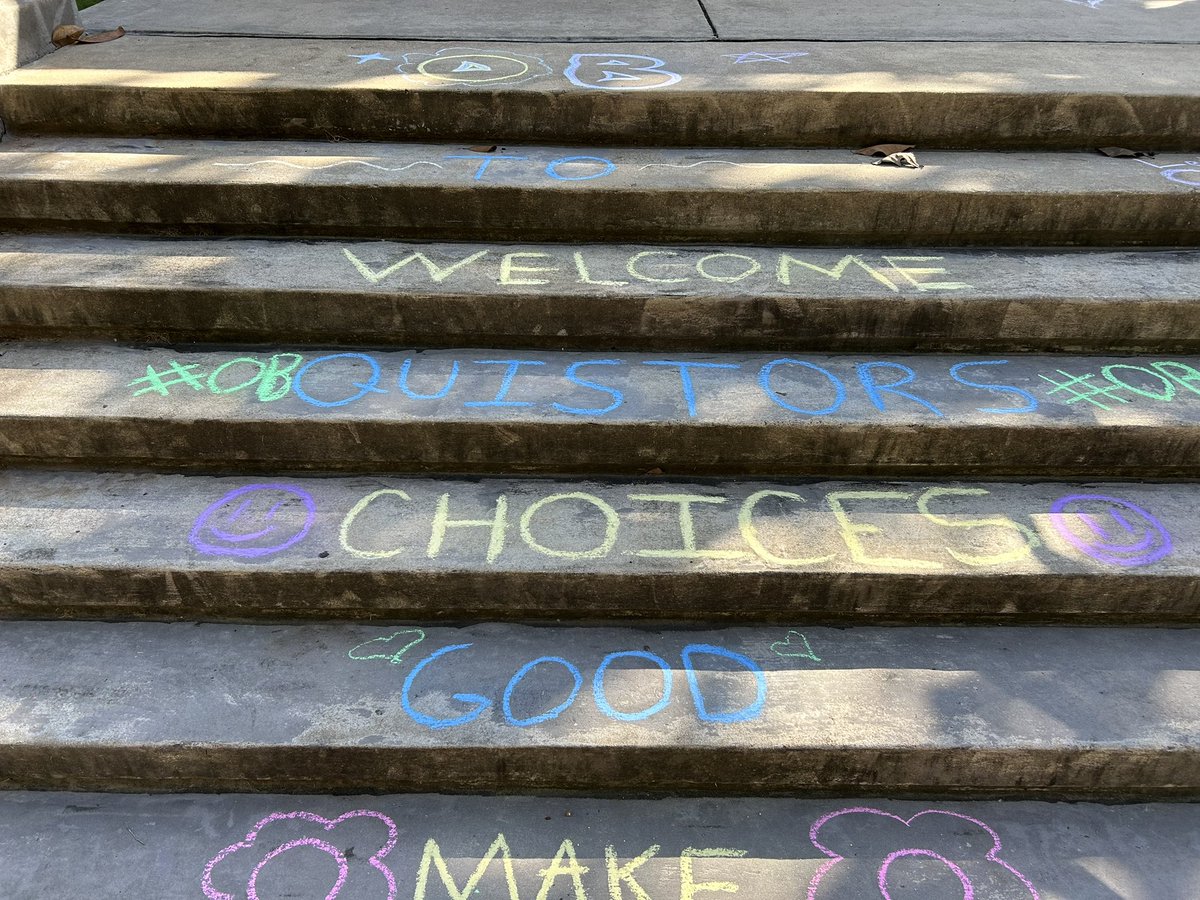 OB
TO
WELCOME
#OBQUISTORS #OB
CHOICES
GOOD
MAKE